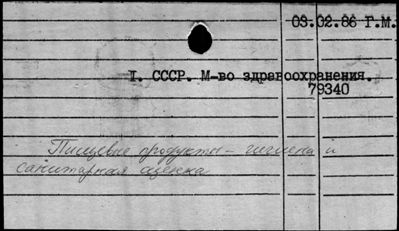 03.02.86 Г.М.
I. СССР. М-во здравоохранения.
79340
Пищевые продукты – гигиена и
санитарная оценка